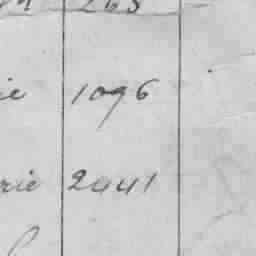 265
ie 1096
rie 2041